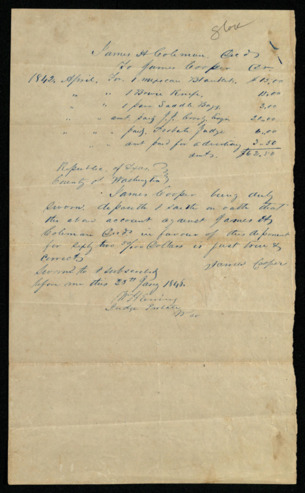 James H Coleman Decd
To James Cooper Dr
1842 April, For 1 Mexican Blanket $ 15.00
" " 1 Bowie Knife, 15.00
" " 1 pair Saddle Bags 3.00
" " and paid
" " paid, Probate Judge 6.00
and paid for 3.50
amt. $62.50
Republic of Texas
County of Washington
James Cooper being duly
sworn deposeth & saith on oath that
the above account against James H
Coleman Decd in favour of this deponent
for sixty two Dollars is just true &
correct
James Cooper
Sworn to & subscribed
before me this 25th Jany 1843
Judge Probate
W C